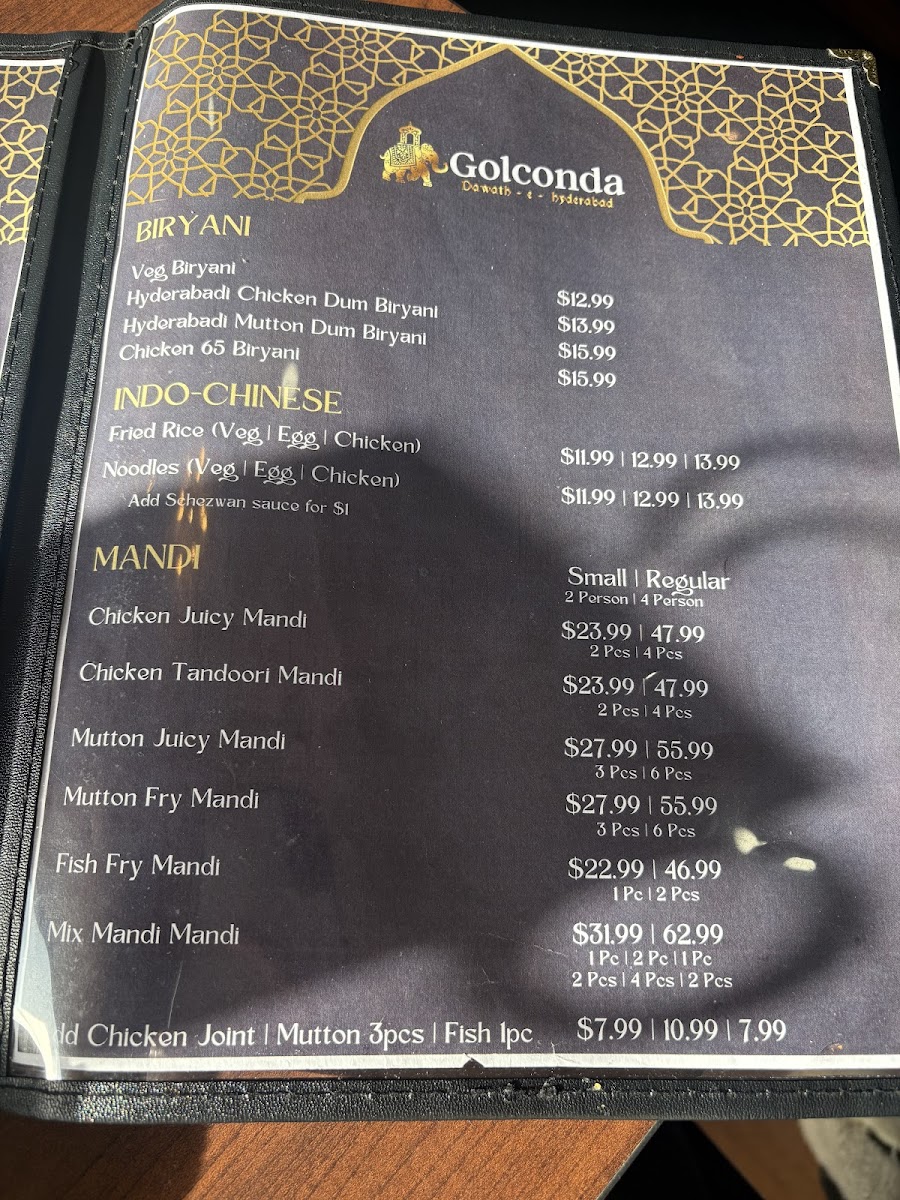 Golconda
Dawath - e - hyderabad
BIRYANI
Veg Biryani $12.99
Hyderabadi Chicken Dum Biryani $13.99
Hyderabadi Mutton Dum Biryani $15.99
Chicken 65 Biryani $15.99
INDO-CHINESE
Fried Rice (Veg | Egg | Chicken) $11.99 | 12.99 | 13.99
Noodles (Veg | Egg | Chicken) $11.99 | 12.99 | 13.99
Add Schezwan sauce for $1
MANDI Small | Regular
2 Person | 4 Person
Chicken Juicy Mandi $23.99 | 47.99
2 Pcs | 4 Pcs
Chicken Tandoori Mandi $23.99 | 47.99
2 Pcs | 4 Pcs
Mutton Juicy Mandi $27.99 | 55.99
3 Pcs | 6 Pcs
Mutton Fry Mandi $27.99 | 55.99
3 Pcs | 6 Pcs
Fish Fry Mandi $22.99 | 46.99
1 Pc | 2 Pcs
Mix Mandi Mandi $31.99 | 62.99
1 Pc | 2 Pc | 1 Pc
2 Pcs | 4 Pcs | 2 Pcs
Chicken Joint | Mutton 3pcs | Fish 1pc $7.99 | 10.99 | 7.99